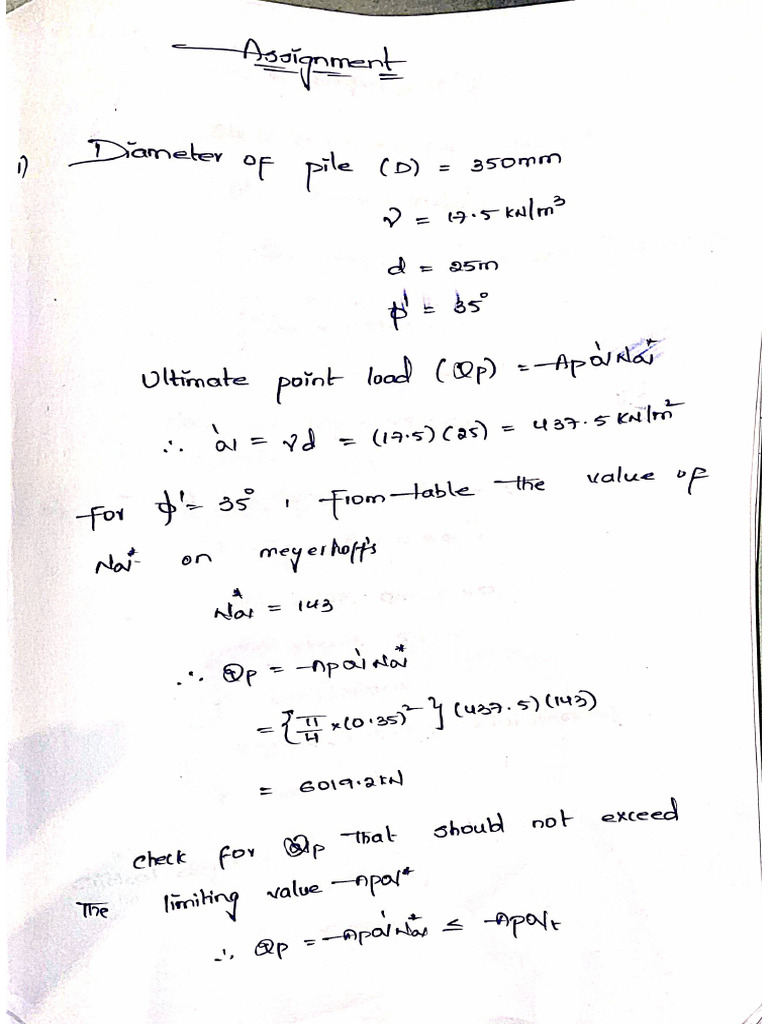 Assignment
1) Diameter of pile (D) = 350mm
γ = 17.5 kN/m³
d = 25m
φ' = 35°
Ultimate point load (Qp) = Apq'Nq*
∴ q' = γd = (17.5)(25) = 437.5 kN/m²
For φ' = 35°, from table the value of
Nq* on meyerhoff's
Nq* = 143
∴ Qp = Apq'Nq*
= {π/4 × (0.35)²} (437.5)(143)
= 6019.2kN
check for Qp that should not exceed
The limiting value Apq*
∴ Qp = Apq'Nq* ≤ Apqt